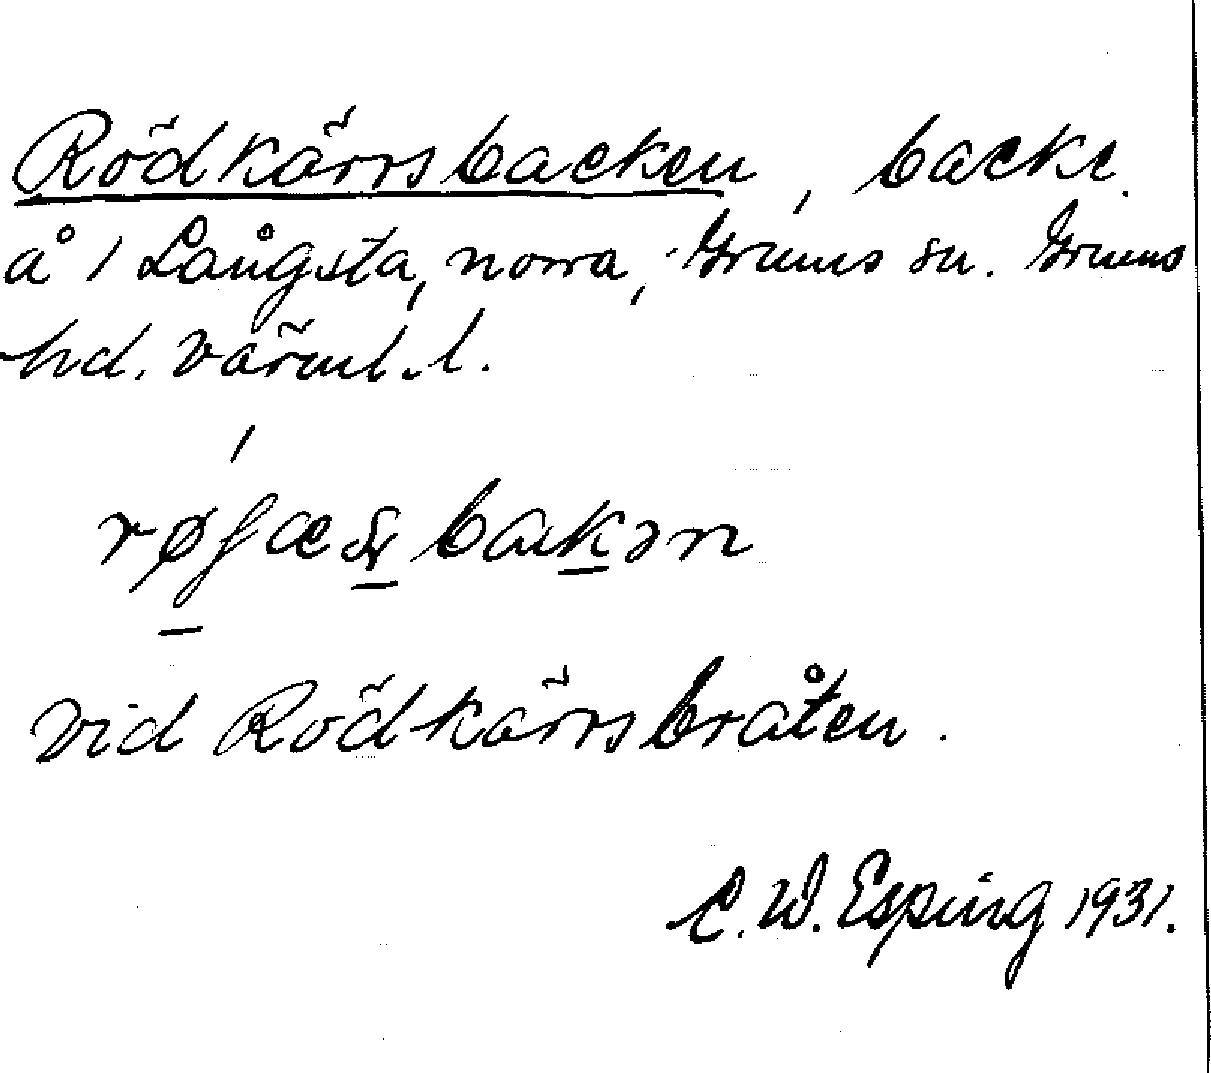 Rödkärrsbacken, backe
å 1 Långsta, norra, Grums sn. Grums
hd. Värml. l.
vid Rödkärrsbråten.
C. W. Esping 1931.